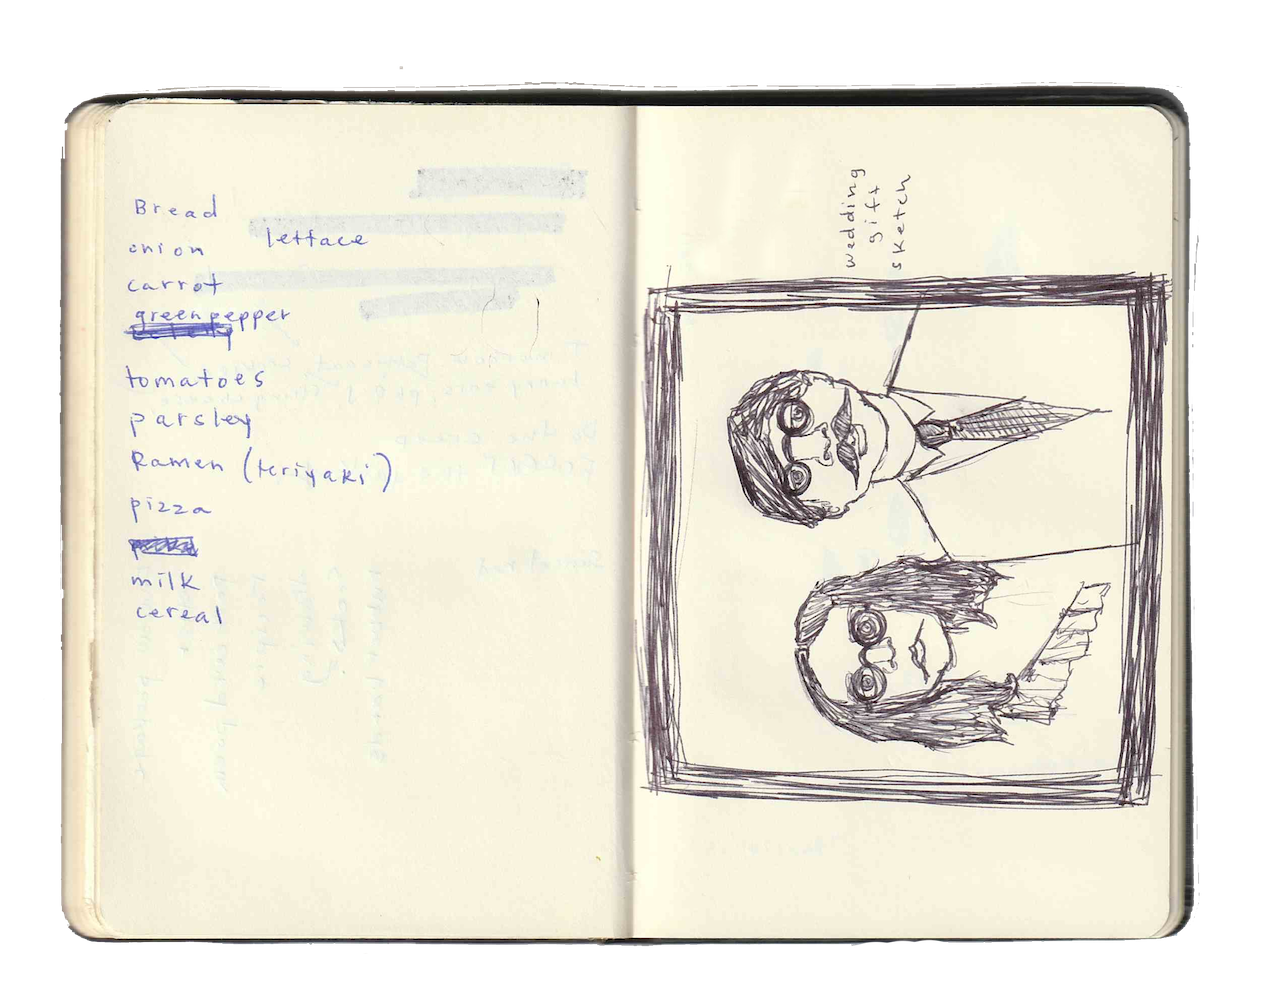 Bread
onion
lettace
carrot
green pepper
tomatoes
parsley
Ramen (teriyaki)
pizza
milk
cereal
wedding
gift
sketch